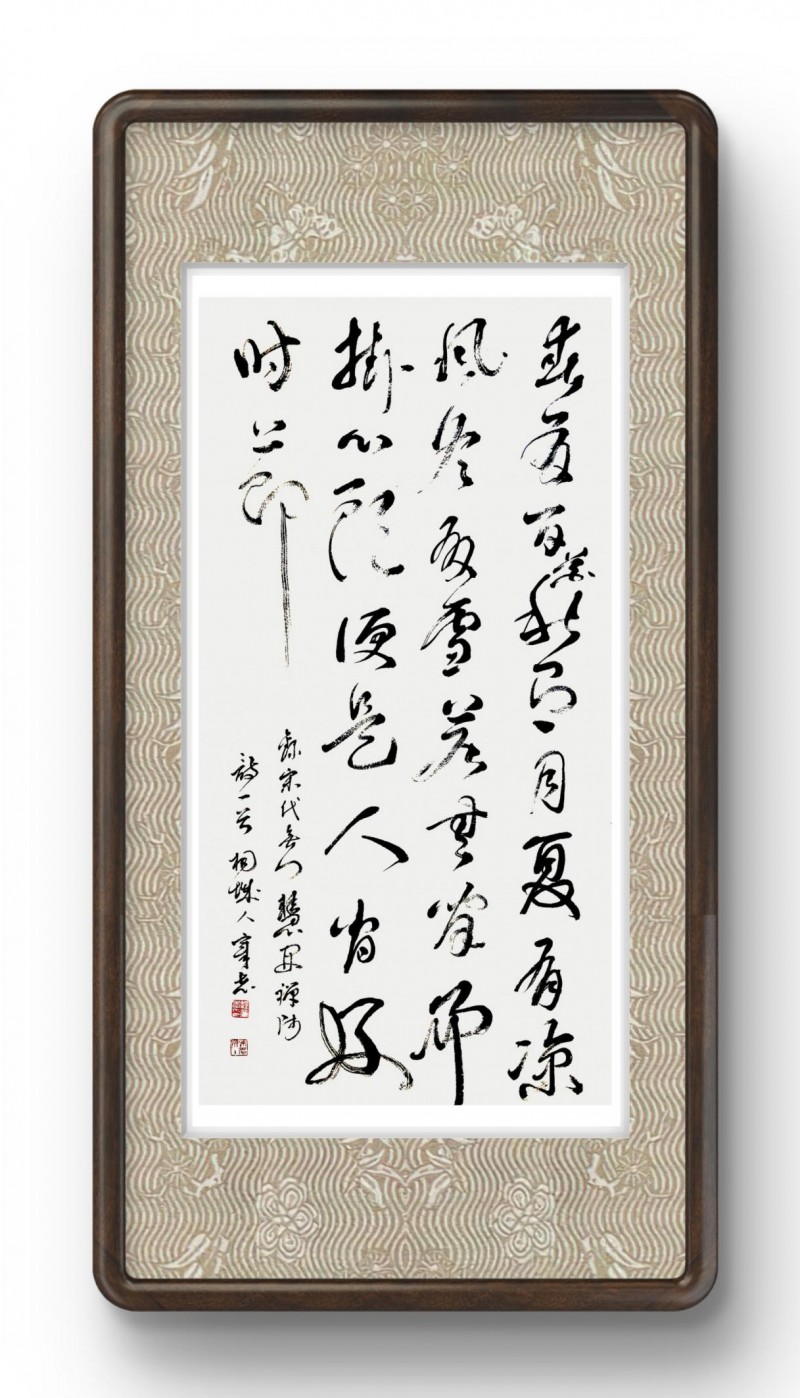 春有百花秋有月夏有凉
风冬有雪若無闲事
掛心頭便是人间好
时節
录宋代无门慧開禅师
诗一首桐城人